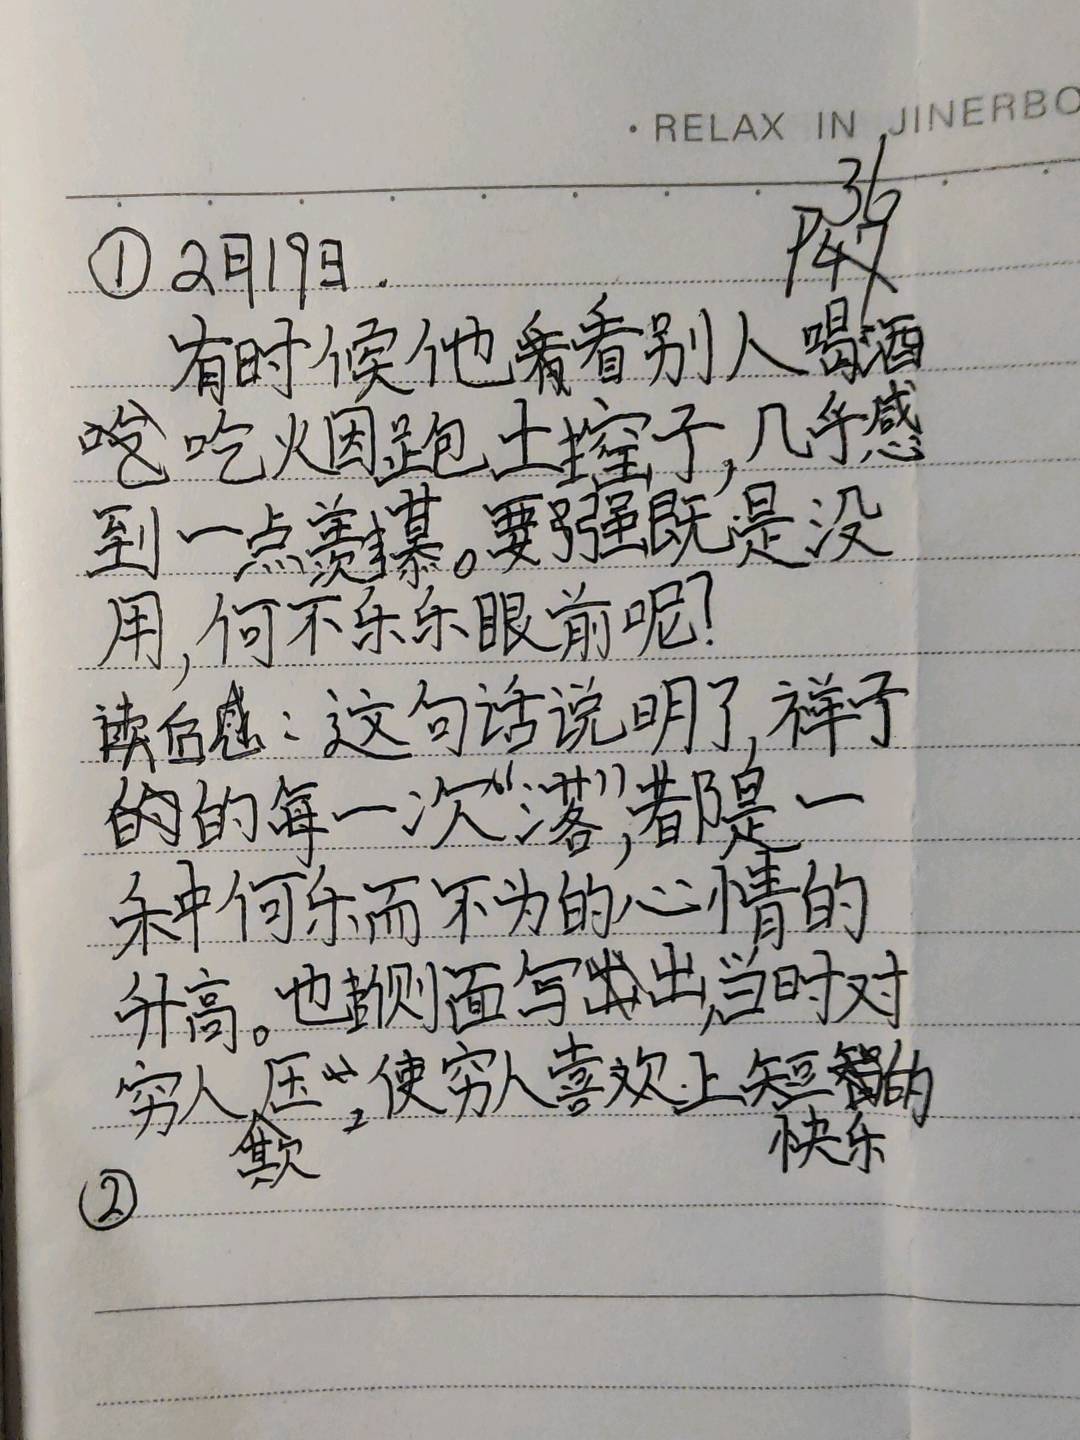 ·RELAX IN JINERBO
36
P47
①2月19日.
有时候他看看别人喝酒
吃吃烟跑土控子,几乎感
到一点羡慕。要强既是没
用,何不乐乐眼前呢?
读后感:这句话说明了,祥子
的的每一次“落”,都是一
种何乐而不为的心情的
升高。也侧面写出出,当时对
穷人欺压,使穷人喜欢上短暂的
快乐
②